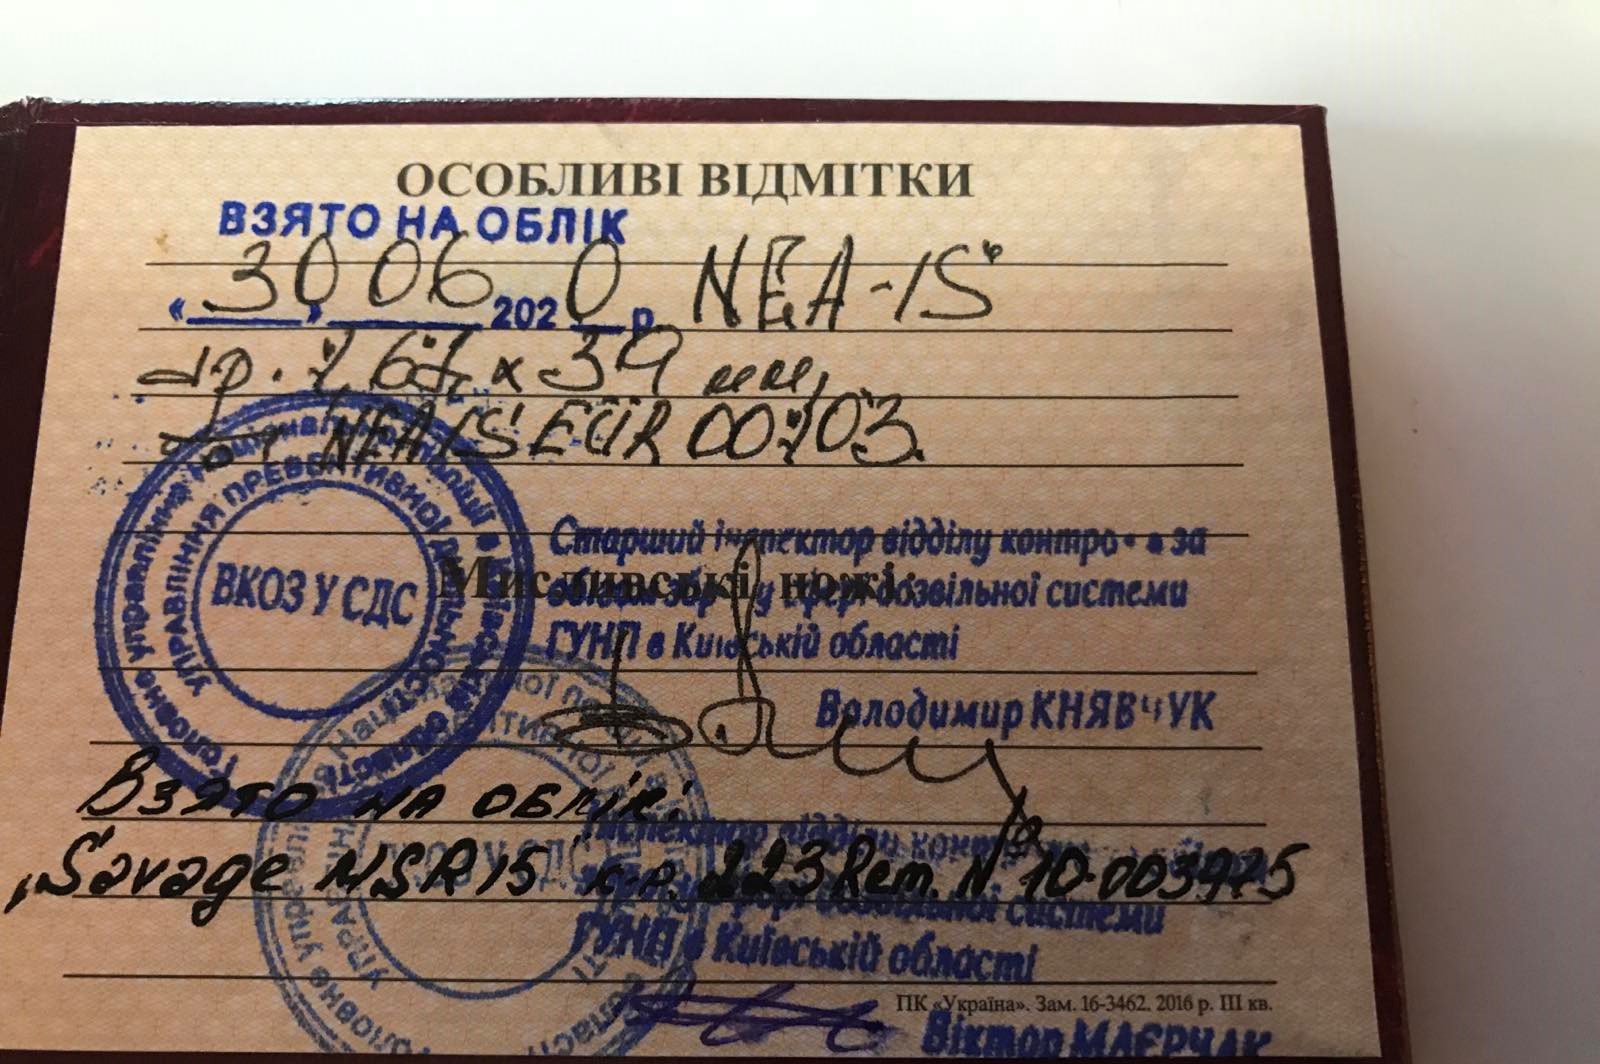 ОСОБЛИВІ ВІДМІТКИ
ВЗЯТО НА ОБЛІК
« 30 » 06 2020 р. NEA-15
др. 7,62 x 39 мм,
NEA15ECIR007103.
Головне управління Національної поліції в Київській області
УПРАВЛІННЯ ПРЕВЕНТИВНОЇ ДІЯЛЬНОСТІ
ВКОЗ У СДС
Старший інспектор відділу за
Мисливські ножі:
дозвільної системи
ГУНП в Київській області
Володимир КНЯВЧУК
Взято на облік:
"Savage MSR15 к-р. 223 Rem. № 10-003975
Інспектор відділу
дозвільної системи
ГУНП в Київській області
ПК «Україна». Зам. 16-3462. 2016 р. III кв.
Віктор МАЄРЧАК